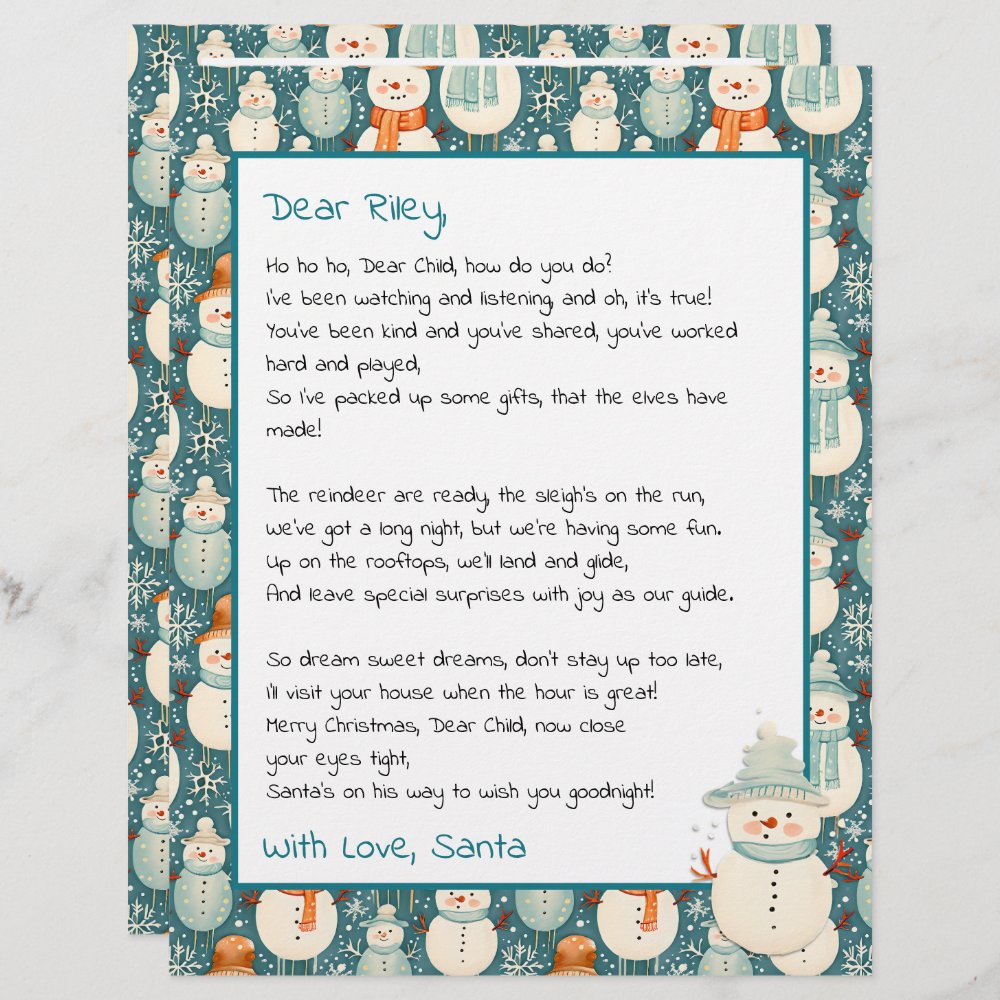 Dear Riley,
Ho ho ho, Dear Child, how do you do?
I've been watching and listening, and oh, it's true!
You've been kind and you've shared, you've worked
hard and played,
So I've packed up some gifts, that the elves have
made!
The reindeer are ready, the sleigh's on the run,
we've got a long night, but we're having some fun.
Up on the rooftops, we'll land and glide,
And leave special surprises with joy as our guide.
So dream sweet dreams, don't stay up too late,
I'll visit your house when the hour is great!
Merry Christmas, Dear Child, now close
your eyes tight,
Santa's on his way to wish you goodnight!
With Love, Santa